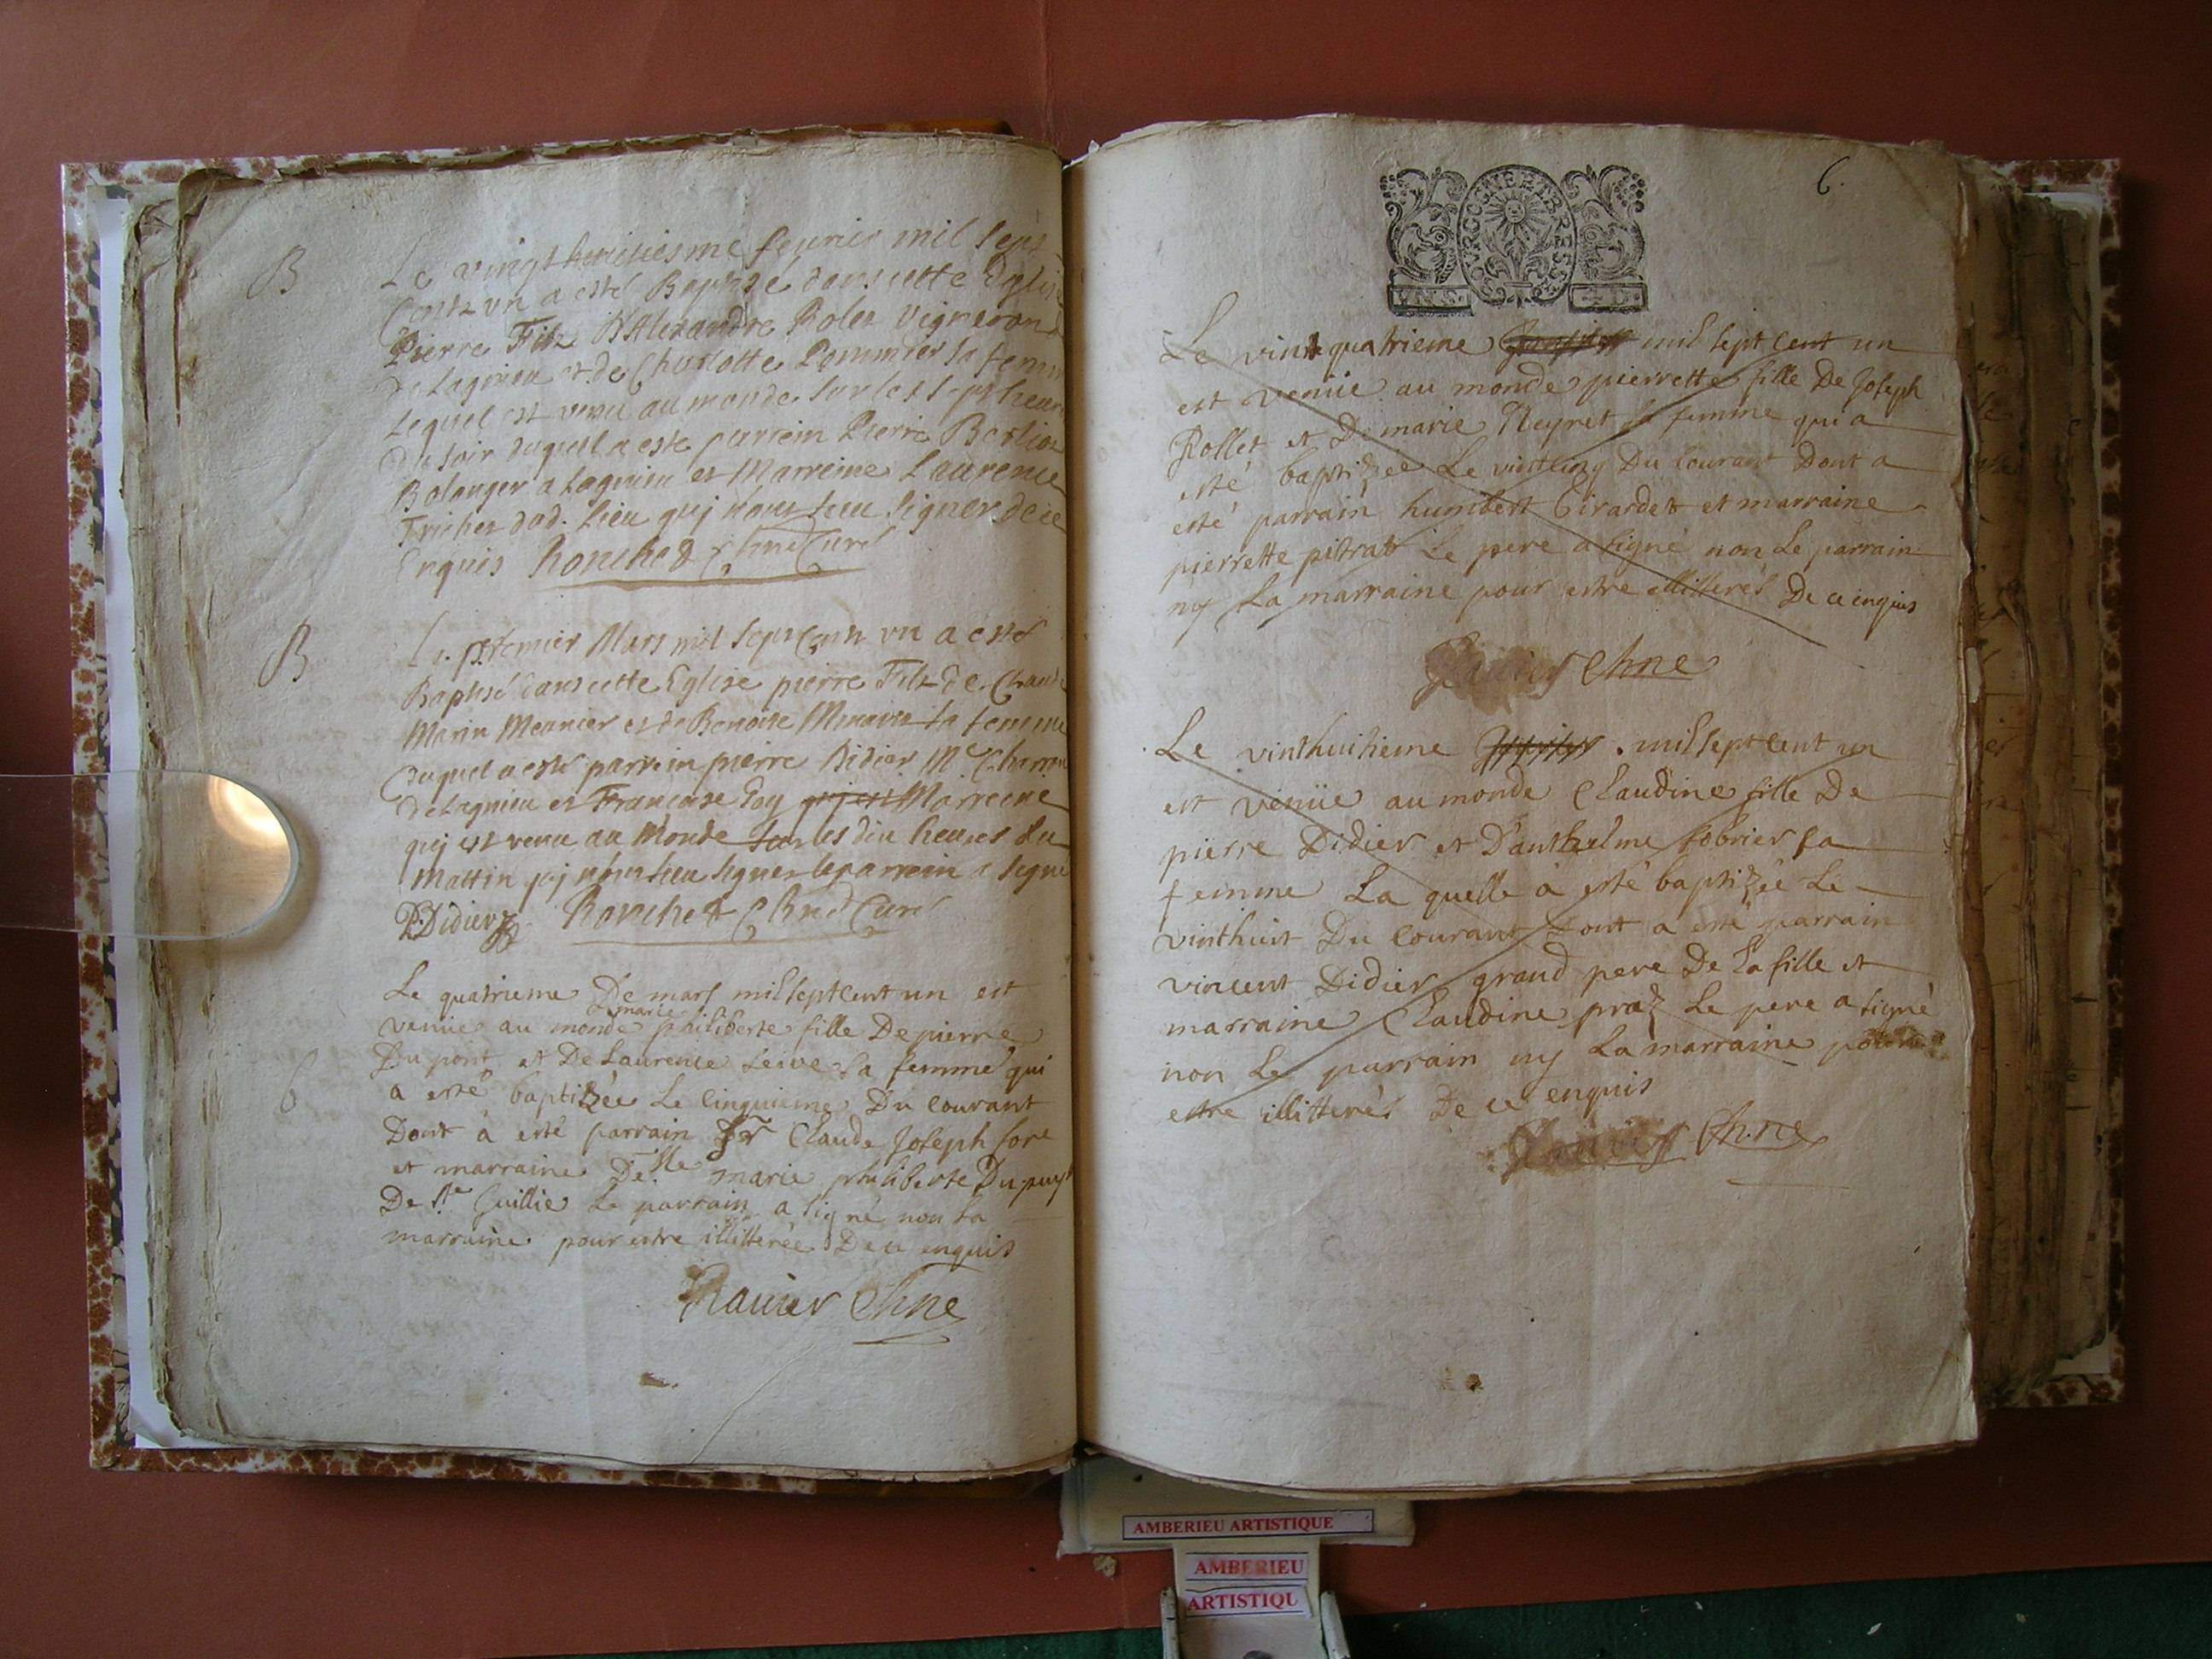 B
Le vingt huitiesme feurier mil Sept
Cents vn a esté Baptisé dans cette Eglise
Pierre Filz D'Alexandre Rolet Vigneron
de Lagnieu et de Charlotte Pommier sa femme
Lequel est venu au monde sur les sept heures
du soir duquel a esté parrein Pierre Berlioz
Bolanger a Lagnieu et Marreine Laurence
Trichet dud. Lieu quj n'ont sceu signer de ce
Enquis Ronchet Chne Curé
B
Le premier Mars mil Sept Cents vn a esté
Baptisé dans cette Eglise pierre Filz de Claude
Marin Meunier et de Benoite sa femme
duquel a esté parrein pierre Didier Me
de Lagnieu et Francoise Goy quj est Marreine
quj est venu au Monde sur les dix heures du
mattin quj n'ont sceu signer le parrein a signé
P. Didier Ronchet Chne Curé
Le quatrieme De mars mil sept cent un est
marie
venüe au monde philiberte fille De pierre
6
Du pont et De Laurence sa femme qui
a esté baptizée Le cinquieme Du courant
Dont à esté parrain Sr Claude Joseph
et marraine Delle marie philiberte Dupuys
De Ste Juillie Le parrain a signé non La
marraine pour estre illitterée De ce enquis
Rauier Chne
6.
BOVRCOGNE ET BRESSE
VN S.
4 D.
Le vint quatrieme mil sept cent un
est venüe au monde pierrette fille De Joseph
Rollet et De marie Neyret sa femme qui a
esté baptizée Le vintcinq Du courant Dont a
esté parrain humbert Girardet et marraine
pierrette pitrat Le pere a signé non Le parrain
ny La marraine pour estre illitterés De ce enquis
Rauier Chne
Le vinthuitieme mil sept cent un
est venüe au monde Claudine fille De
pierre Didier et D'anthelme sobrier sa
femme La quelle à esté baptizée Le
vinthuit Du courant Dont a esté parrain
vincent Didier grand pere De La fille et
marraine Claudine praz Le pere a signé
non Le parrain ny La marraine pour
estre illitterés De ce enquis
Rauier Chne
AMBERIEU ARTISTIQUE
AMBERIEU
ARTISTIQU